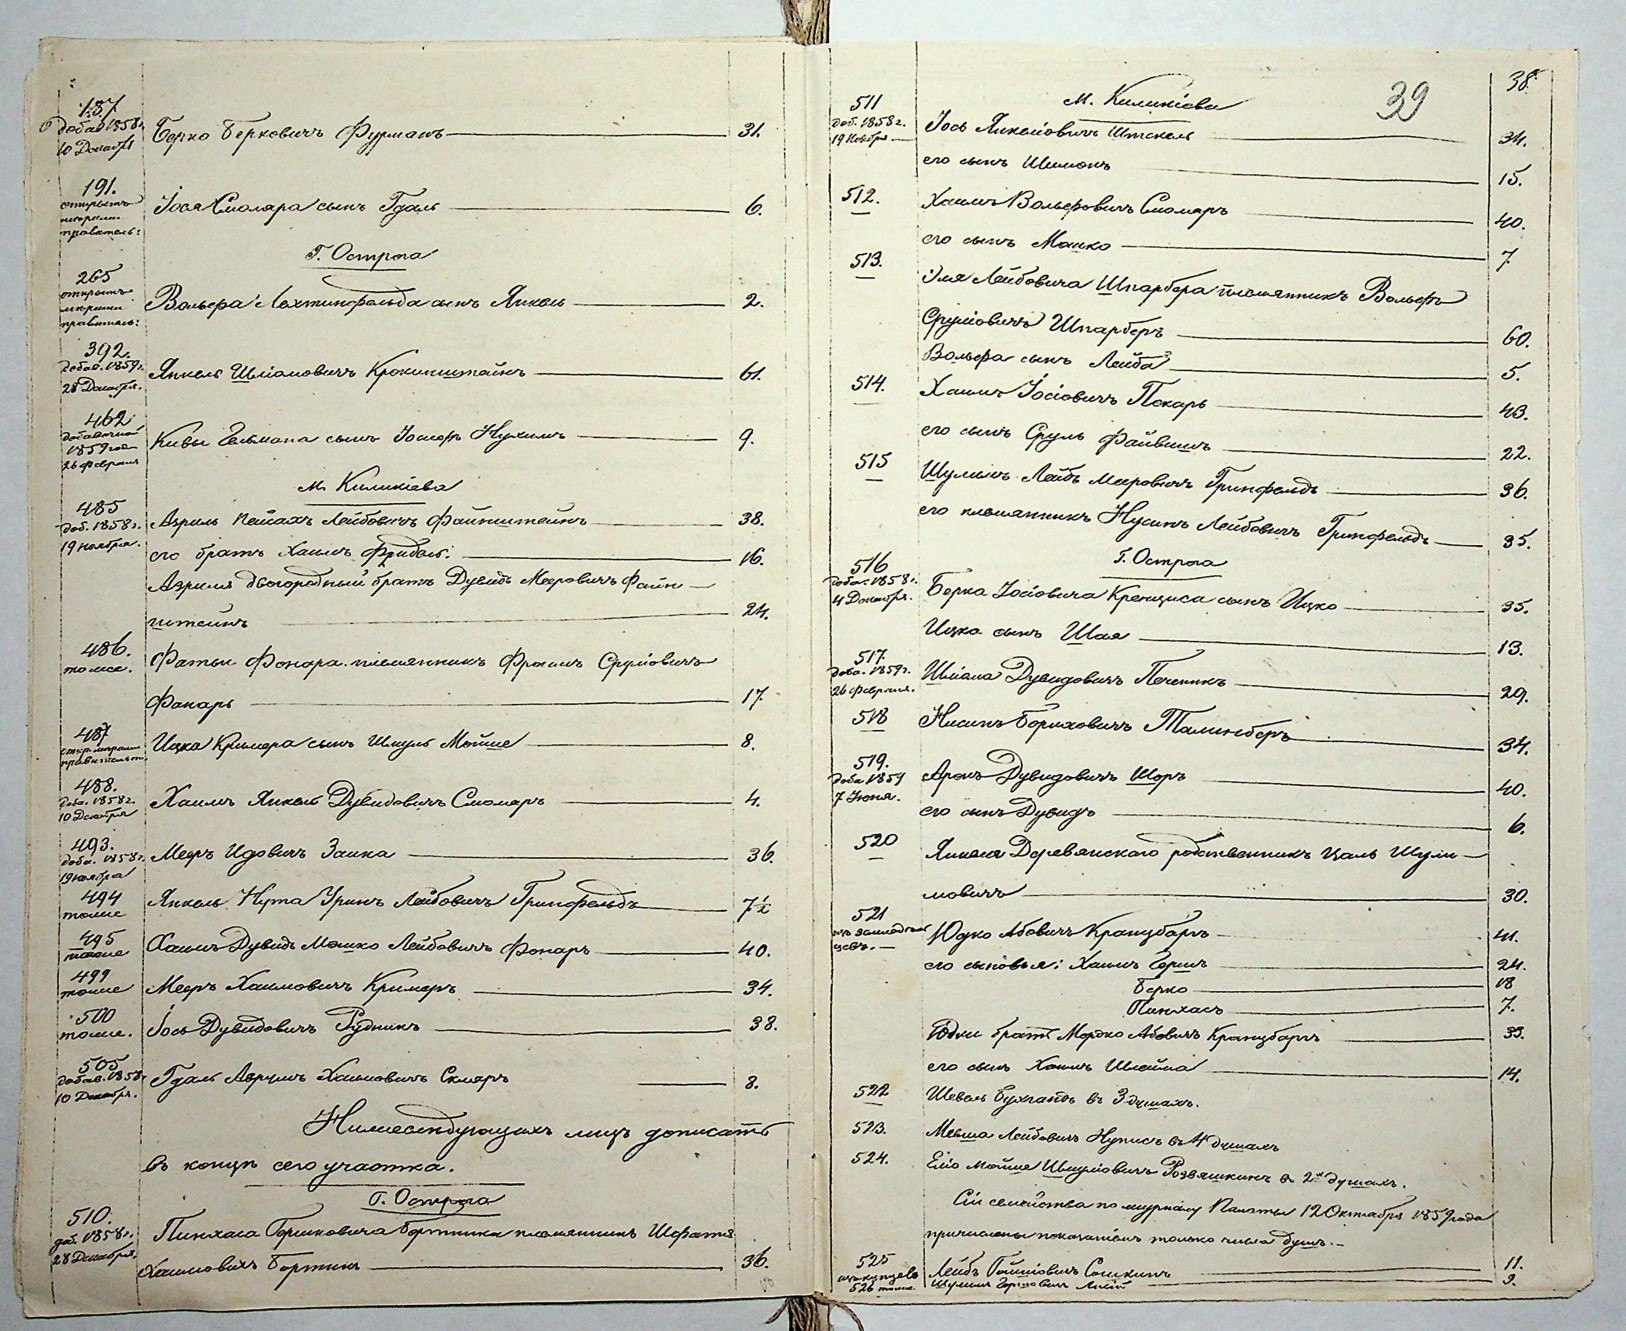 187
добав. 1858 г.
10 Декабря
Берко Берковичъ Фурманъ 31.
191.
открытъ
правитель:
Іося Смоляра сынъ Гдаль 6.
Г. Острога
265
открытъ
правитель:
Вольфа Лохтинфельда сынъ Янкель 2.
392.
добав. 1859 г.
28 Декабря.
Янкель Шліомовичъ Крокинштейнъ 61.
462
добавочная
1859 года
26 Февраля
Кивы Гельмана сынъ Іосифъ Нухимъ 9.
М. Киликіева
485
доб. 1858 г.
19 ноября.
Азриль Пейсахъ Лейбовичъ Файнштейнъ 38.
его братъ Хаимъ Фридель: 16.
Азриля двоюродный братъ Дувидъ Мееровичъ Файн-
штейнъ 24.
486.
тоже.
Фатьи Фонара племянникъ Фроимъ Сруліовичъ
Фонарь 17.
487
правительст.
Ицка Кримера сынъ Шмуль Мойше 8.
488.
доб. 1858 г.
10 Декабря
Хаимъ Янкель Дувидовичъ Смоляръ 4.
493.
доба. 1858 г.
19 ноября
Мееръ Идовичъ Заика 36.
494
тоже
Янкель Нута Зринъ Лейбовичъ Гринфельдъ 7½
495
тоже
Хаимъ Дувидъ Мошко Лейбовичъ Фонаръ 40.
499
тоже
Мееръ Хаимовичъ Кримеръ 34.
500
тоже.
Іось Дувидовичъ Рудникъ 38.
505
добав. 1858
10 Декабря.
Гдаль Аврумъ Хаимовичъ Скляръ 8.
Нижеслѣдующихъ лицъ дописать
въ концѣ сего участка.
Г. Острога
510.
доб. 1858 г.
28 Декабря.
Пинхаса Гершковича Бортника племянникъ Шефатя
Хаимовичъ Бортникъ 36.
38.
39
М. Киликіева
511
доб. 1858 г.
19 Ноября
Іось Янкеліовичъ Штекель 34.
его сынъ Шимонъ 15.
512.
Хаимъ Вольфовичъ Смоляръ 40.
его сынъ Мошко 7
513.
Эля Лейбовича Шпарбера племянникъ Вольфъ
Сруліовичъ Шпарберъ 60.
Вольфа сынъ Лейба 5.
514.
Хаимъ Іосіовичъ Пекарь 43.
его сынъ Сруль Файвишъ 22.
515
Шулимъ Лейбъ Мееровичъ Гринфельдъ 36.
его племянникъ Нусинъ Лейбовичъ Гринфельдъ 35.
Г. Острога
516
доба. 1858 г.
4 Декабря.
Берка Іосіовича Кренциса сынъ Ицко 35.
Ицка сынъ Шая 13.
517.
доба. 1859 г.
26 Февраля.
Шліома Дувидовичъ Печеникъ 29.
518
Нисинъ Бориховичъ Талинберъ 34.
519.
доба 1859
7 Іюня.
Аронъ Дувидовичъ Шоръ 40.
его сынъ Дувидъ 6.
520
Янкеля Деревянского родственникъ Цаль Шули-
мовичъ 30.
521
Юдко Абовичъ Кранцбаргъ 41.
его сыновья: Хаимъ Гершъ 24.
Берко 18
Пинхасъ 7.
Юдки братъ Мордко Абовичъ Кранцбаргъ 33.
его сынъ Хаимъ Шлойма 14.
522
Шевель Бухгалтъ въ 3 душахъ.
523.
Мевша Лейбовичъ Нуписъ въ 4 душахъ
524.
Еліо Мойше Шмуліовичъ Розвяшкинъ въ 2хъ душахъ.
Сіи семейства по журналу Палаты 12 Октября 1859 года
причислены показаніемъ только числа душъ.
525
изъ купцовъ
Лейбъ Гойшіовичъ Сошкинъ 11.
526 тоже
Шулимъ Гершковичъ 9.